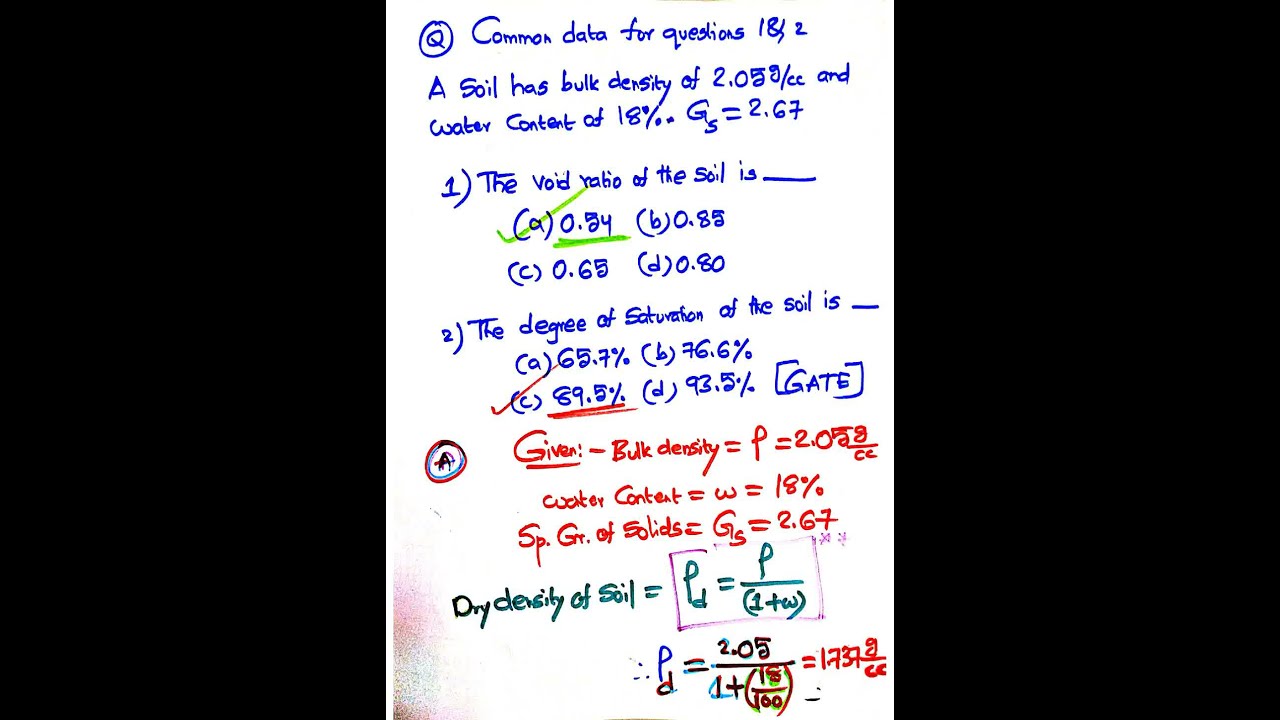 Q Common data for questions 1 & 2
A soil has bulk density of 2.05 g/cc and
water content of 18%. Gs = 2.67
1) The void ratio of the soil is ___
(a) 0.54 (b) 0.85
(c) 0.65 (d) 0.80
2) The degree of saturation of the soil is __
(a) 65.7% (b) 76.6%
(c) 89.5% (d) 93.5% [GATE]
A Given:- Bulk density = ρ = 2.05 g/cc
water content = w = 18%
Sp. Gr. of Solids = Gs = 2.67
Dry density of soil = ρd = ρ/(1+w)
∴ ρd = 2.05/(1+(18/100)) = 1.737 g/cc